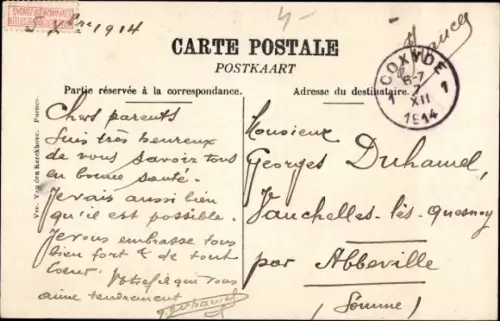 Xbre 1914
France
CARTE POSTALE
POSTKAART
Partie réservée à la correspondance.
Adresse du destinataire.
COXYDE
6-7
7
XII
1914
1 1
Ver. Van den Kerckhove. Furnes.
Chers parents
Suis très heureux
de vous savoir tous
en bonne santé.
Je vais aussi bien
qu'il est possible.
Je vous embrasse tous
bien fort & de tout
coeur.
Votre fils qui vous
aime tendrement
GDuhamel
Monsieur
Georges Duhamel,
Vauchelles-lès-Quesnoy
par Abbeville
(Somme)